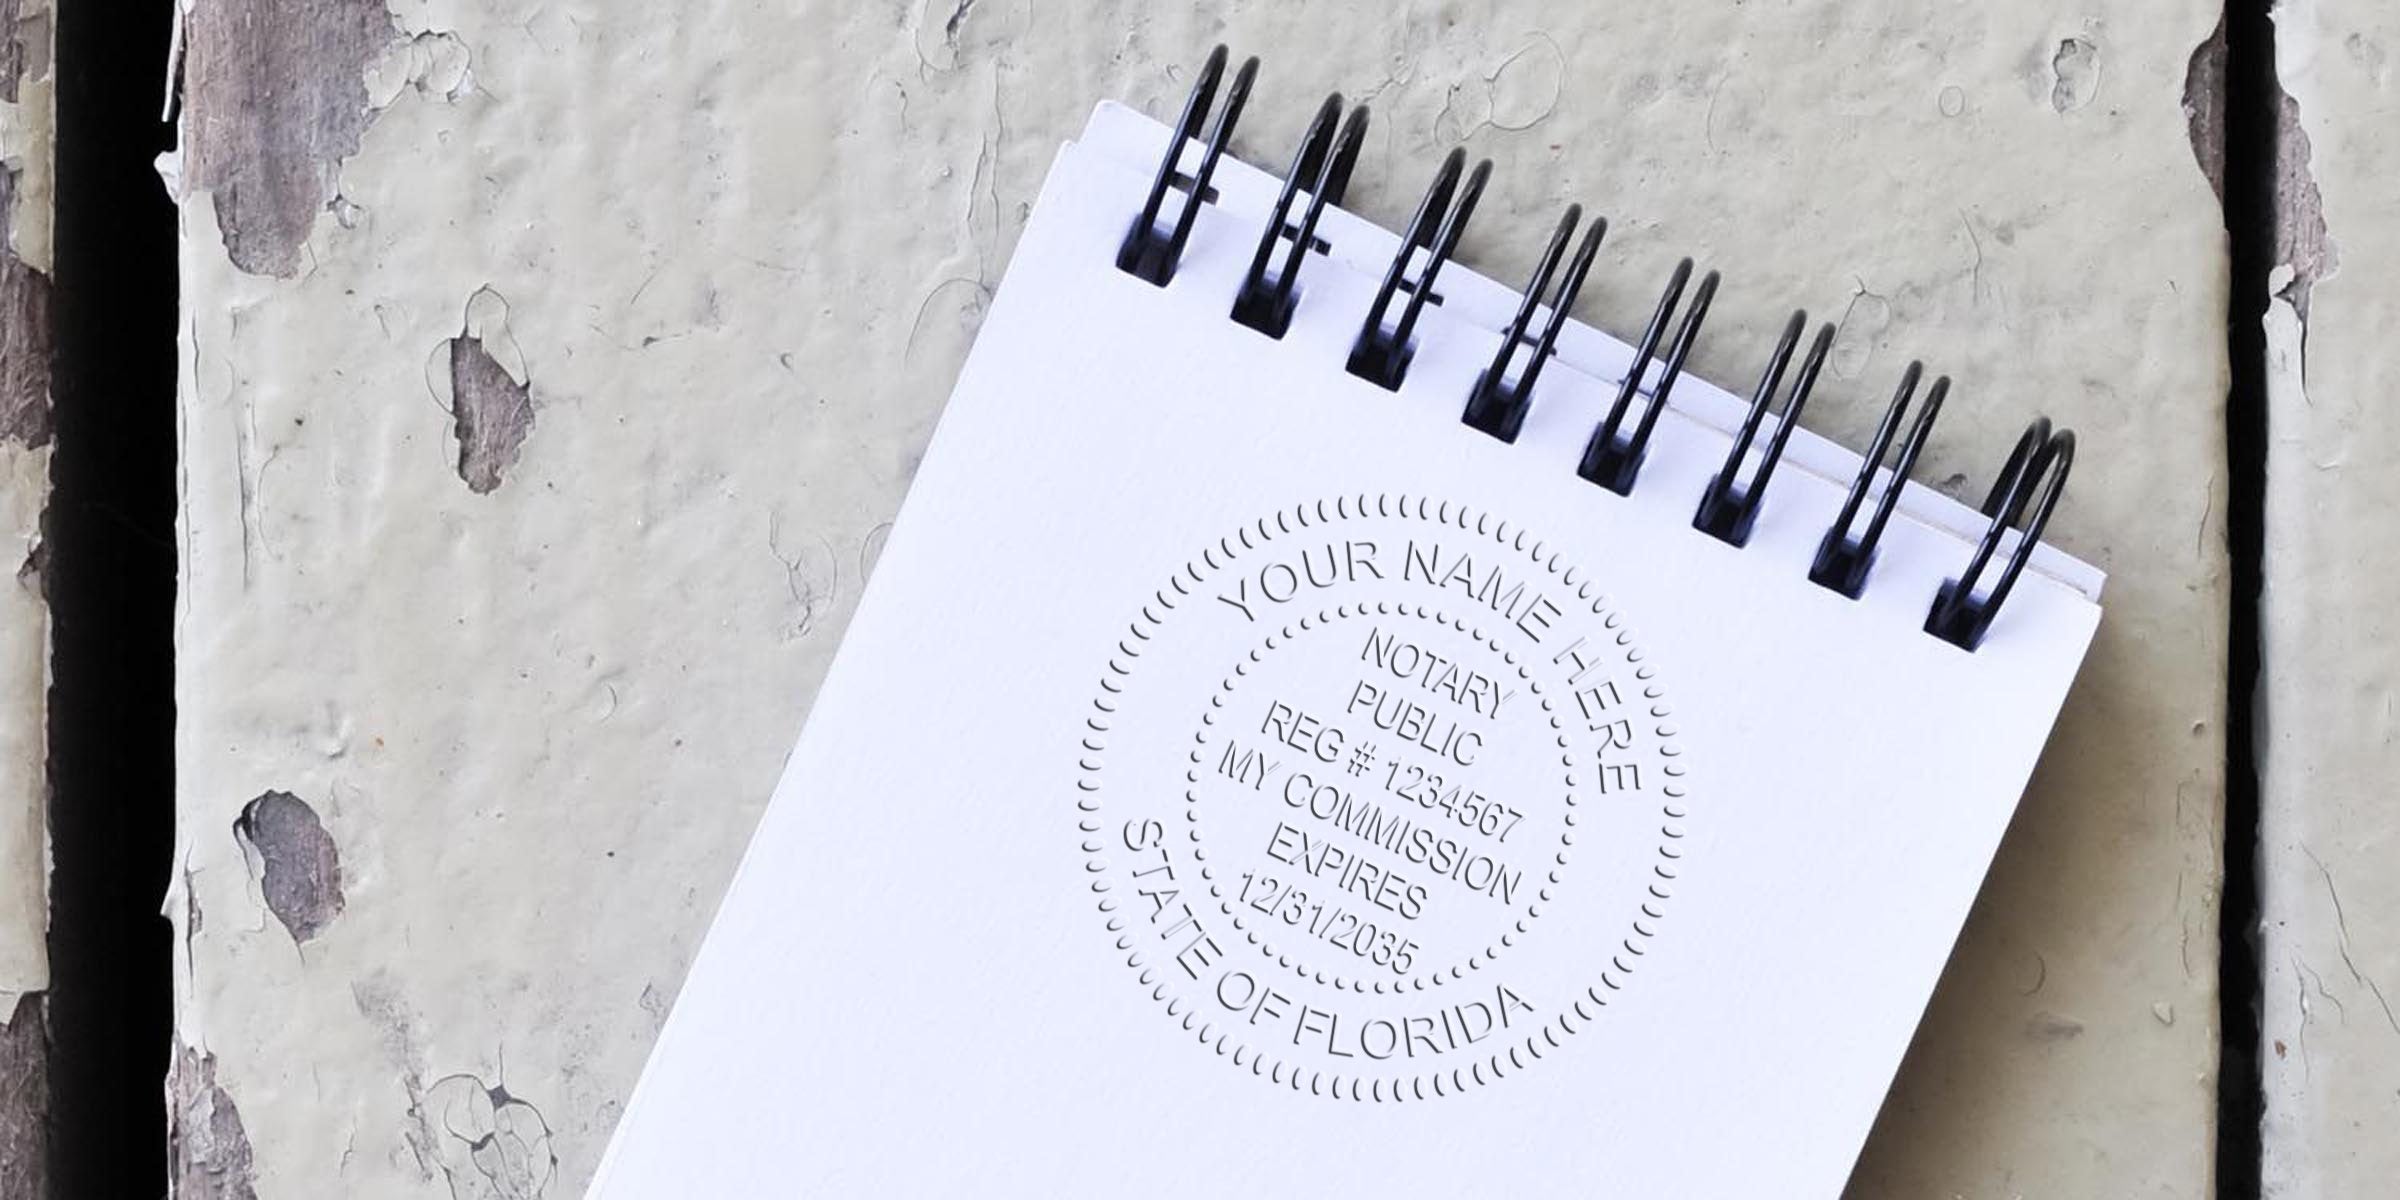 YOUR NAME HERE
NOTARY
PUBLIC
REG # 1234567
MY COMMISSION
EXPIRES
12/31/2035
STATE OF FLORIDA